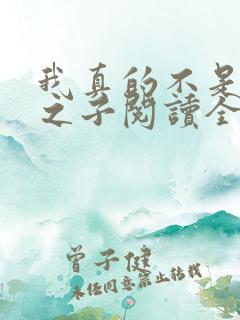 我真的不是
之子閱讀全
曾子健
未經同意禁止轉載